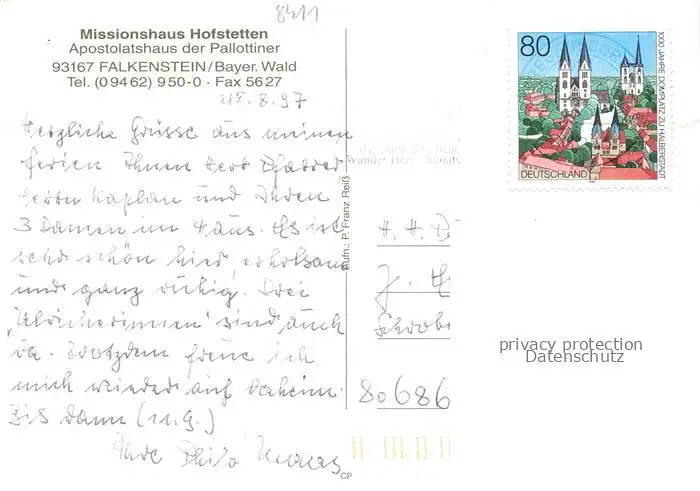 8411
Missionshaus Hofstetten
Apostolatshaus der Pallottiner
93167 FALKENSTEIN/Bayer. Wald
Tel. (0 94 62) 9 50-0 · Fax 56 27
28.8.97
Herzliche Grüsse aus meinen
Ferien Ihnen Herr Pfarrer
Herrn Kaplan und Ihren
3 Damen im Haus. Es ist
sehr schön hier, erholsam
und ganz ruhig. Drei
"Ulricherinnen" sind auch
da. Trotzdem freue ich
mich wieder auf daheim.
Bis dann (11.9.)
Ihre
Aufn.: P. Franz Reiß
CP
H. H.
J.
80686
80
DEUTSCHLAND
1000 JAHRE DOMPLATZ ZU HALBERSTADT
privacy protection
Datenschutz